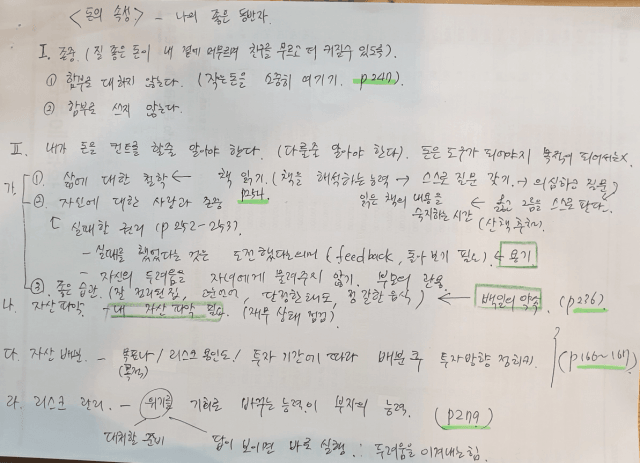 <돈의 속성> - 나의 좋은 동반자.
I. 존중. (질 좋은 돈이 내 곁에 머무르며 친구를 부르고 더 커질수 있도록).
① 함부로 대하지 않는다. (작은돈을 소중히 여기기. p240)
② 함부로 쓰지 않는다.
II. 내가 돈을 컨트롤 할줄 알아야 한다. (다룰줄 알아야 한다). 돈은 도구가 되어야지 목적이 되어서는 X.
가. ① 삶에 대한 철학 ← 책 읽기. (책을 해석하는 능력 → 스스로 질문 갖기. → 의심하고 질문)
② 자신에 대한 사랑과 존중 p254 읽은 책의 내용을 숙지하는 시간 ← 옳고 그름을 스스로 판단. (산책 추천)
실패할 권리 (p 252 - 253).
- 실패를 했었다는 것은 도전했다는의미 (feedback, 돌아보기 필요) ← 용기
- 자신의 두려움을 자녀에게 물려주지 않기. 부모의 관용
③. 좋은 습관. (잘 정리된 집, 단정한 태도, 정갈한 음식) ← 백일의 약속. (p276)
나. 자산파악. - 내 자산 파악 필수 (재무 상태 점검)
다. 자산 배분. - 목표나/ 리스크 용인도/ 투자 기간에 따라 배분 후 투자방향 정하기. (p160~161)
(목적)
라. 리스크 관리. - 위기를 기회로 바꾸는 능력이 부자의 능력. (p279)
대처할 준비 답이 보이면 바로 실행. ∴ 두려움을 이겨내는 힘.